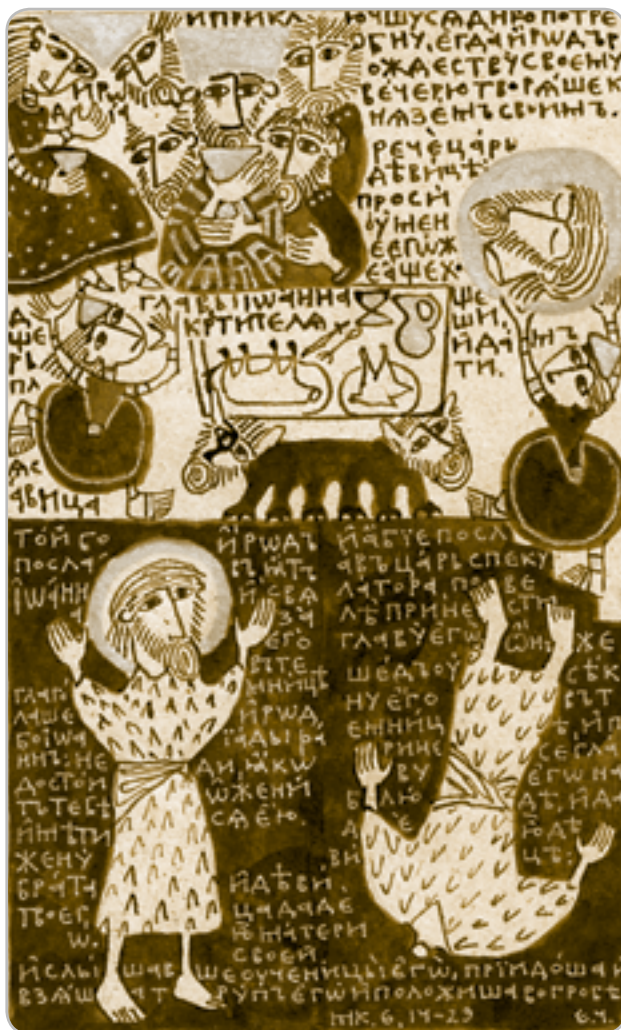 И ПРИКЛЮЧШУСѦ ДНЮ ПОТРЕ
БНУ, ЕГДА И҆РѠДЪ Р
ОЖДЕСТВУ СВОЕМУ
ВЕЧЕРЮ ТВОРѦШЕ К
НѦЗЕМЪ СВОИМЪ.
РЕЧЕ ЦАРЬ
ДѢВИЦѢ
ПРОСИ
ОУ МЕН
Е ЕГѠЖ
Е АЩЕ Х
ОЩЕ
ШИ,
И ДАМЪ
ТИ.
ГЛАВЫ ІѠАННА
КРТИТЕЛѦ
ДЩЕРЬ ПЛѦСАВИЦА
ТОЙ БО И҆РѠДЪ
ПОСЛА
ІѠАННА И СВѦ
ЗА
ЕГО
ВЪ ТЕ
МНИЦѢ
И҆РѠД,
ДИ, ІАКѠ
ѠЖЕНИ
СѦ ЕЮ.
ГЛАГО
ЛАШЕ
БО ІѠА
ННЪ: НЕ
ДОСТОИ
ТЪ ТЕБѢ
ИМѢТИ
ЖЕНУ
БРАТА
ТВОЕГ
Ѡ.
И АБІЕ ПОСЛ
АВЪ ЦАРЬ СПЕКУ
ЛАТОРА, ПОВЕ
ЛѢ ПРИНЕСТИ
ГЛАВУ ЕГѠ ѠН ЖЕ
ШЕДЪ ОУСѢК
НУ ЕГО ВЪ Т
ЕМНИЦѢ, И П
РИНЕСЕ ГЛА
ВУ ЕГѠ НА
БЛЮДѢ, И ДА
ДЕ Ю ДѢ
ВИЦѢ:
И ДѢВИ
ЦА ДАДЕ
Ю МАТЕРИ
СВОЕЙ.
И СЛЫШАВШЕ ОУЧЕНИЦЫ ЕГѠ, ПРІИДОША И
ВЗѦША ТРУПЪ ЕГѠ И ПОЛОЖИША ВО ГРОБѢ
МК. 6, 14-29